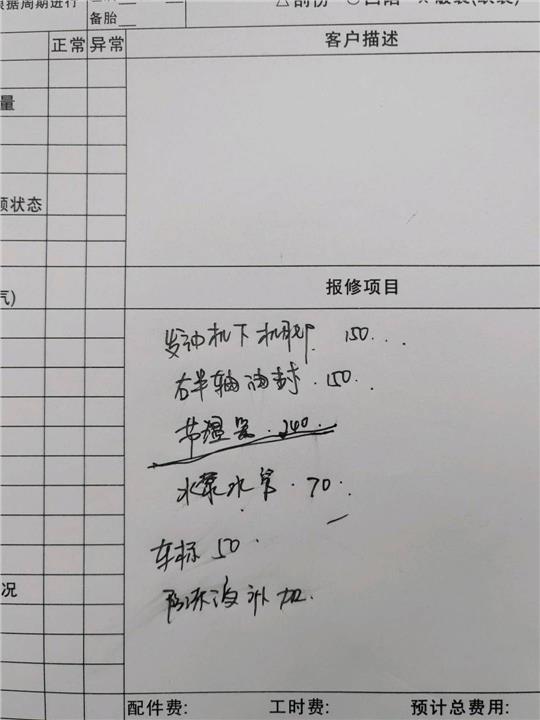 根据周期进行
备胎
△刮伤 〇凹陷
正常 异常 客户描述
量
状态
气)
报修项目
发动机下机脚 150...
右半轴油封.150..
节温器.240.
水泵水管.70.
车标 50.
防冻液补加.
况
配件费: 工时费: 预计总费用: